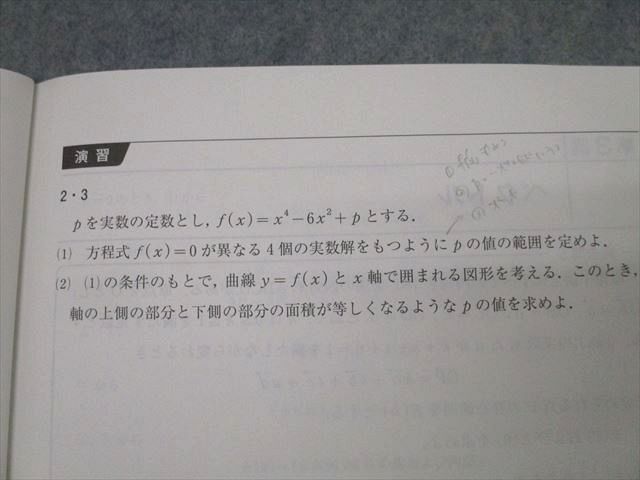 演習
2・3
pを実数の定数とし，f(x)=x⁴−6x²+pとする．
(1) 方程式f(x)=0が異なる4個の実数解をもつようにpの値の範囲を定めよ．
(2) (1)の条件のもとで，曲線y=f(x)とx軸で囲まれる図形を考える．このとき，
軸の上側の部分と下側の部分の面積が等しくなるようなpの値を求めよ．